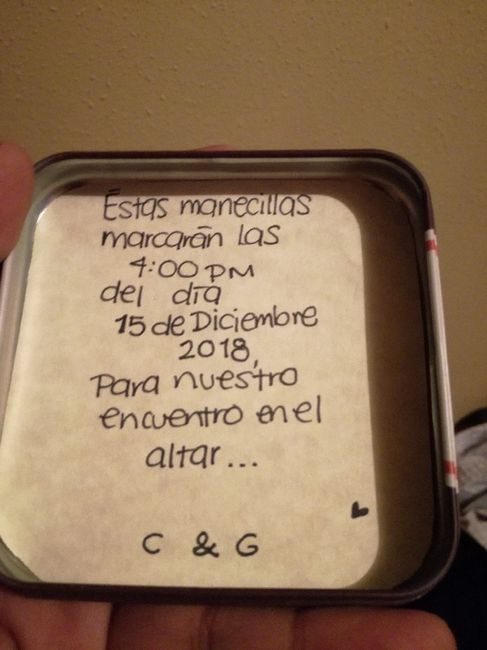 Éstas manecillas
marcarán las
4:00 PM
del día
15 de Diciembre
2018,
Para nuestro
encuentro en el
altar...
C & G